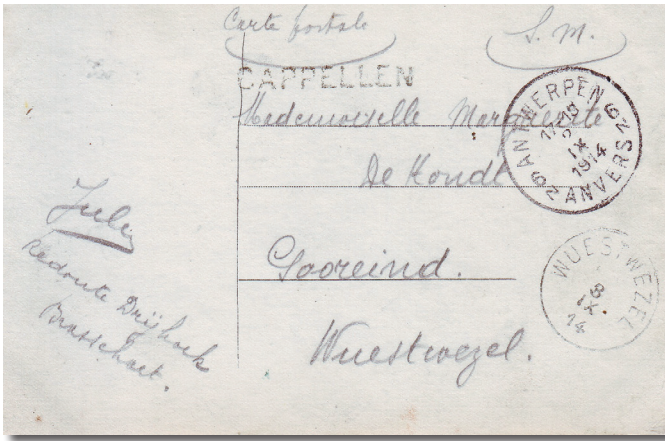 Carte postale
S. M.
CAPPELLEN
Mademoiselle Marguerite
De Hondt
Gooreind.
Wuestwezel.
ANTWERPEN 6N
17-18
2
IX
1914
6N ANVERS
WUESTWEZEL
3
IX
14
Jules
Redoute Drijhoek
Brasschaet.